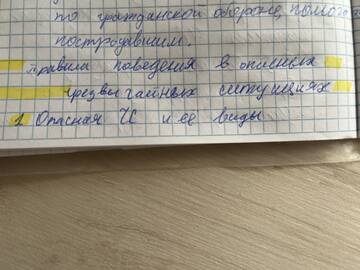 по гражданской обороне, помога
постродавшим.
правила поведения в опасных
чрезвычайных ситуациях
1 Опасная ЧС и её виды